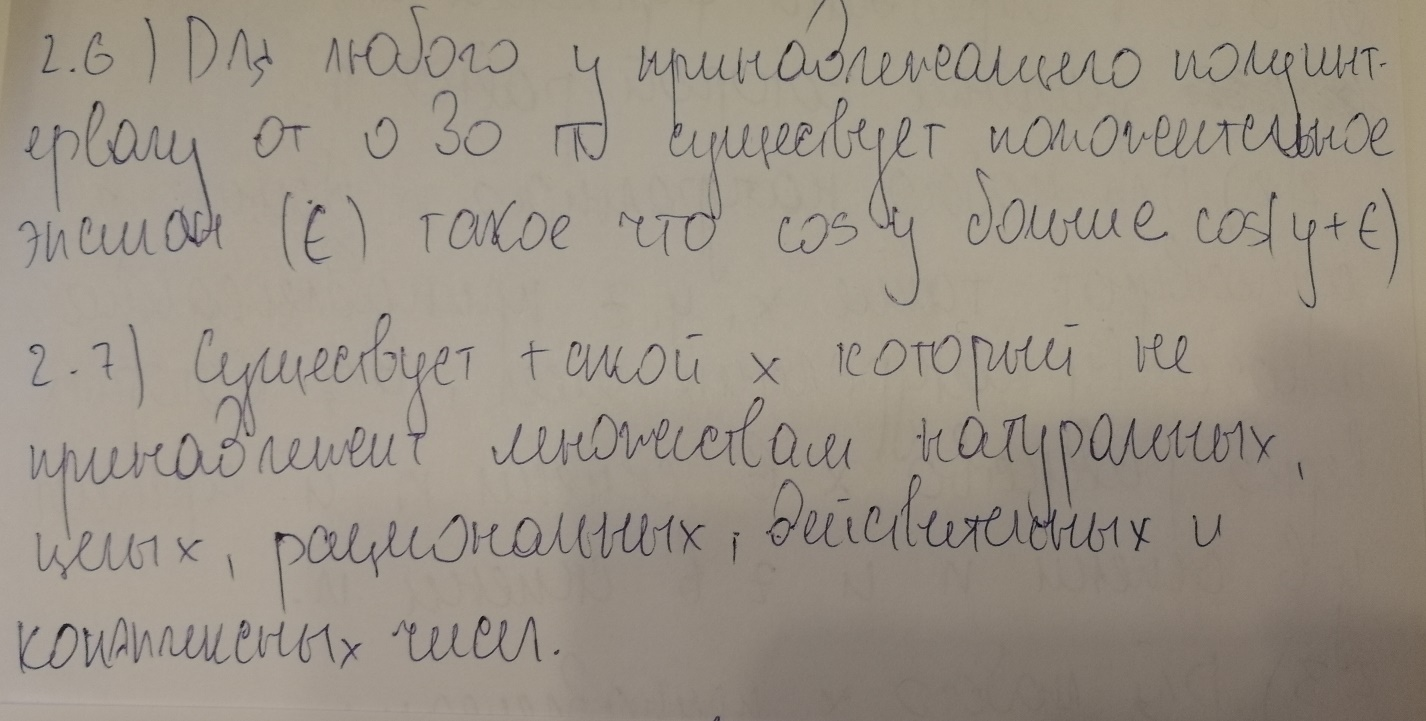 2.6) Для любого y принадлежащего полуинт-
ервалу от 0 до π существует положительное
эпсилон (ϵ) такое что cos y больше cos(y+ϵ)
2.7) Существует такой x который не
принадлежит множествам натуральных,
целых, рациональных, действительных и
комплексных чисел.